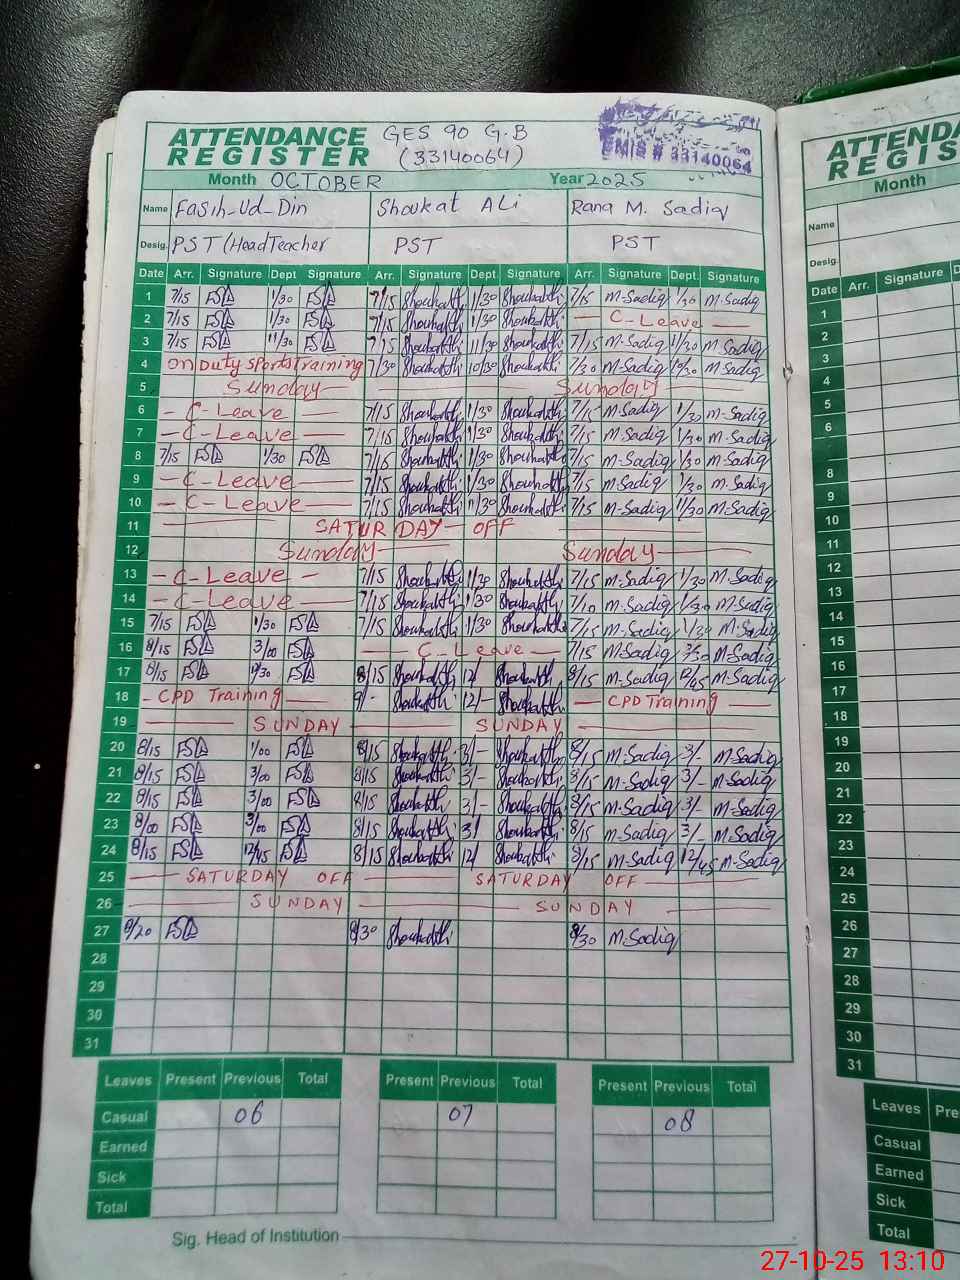 ATTENDANCE REGISTER GES 90 G.B
(33140064)
EMIS # 33140064
Month OCTOBER Year 2025
Name Fasih-Ud-Din Shoukat ALi Rana M. Sadiq
Desig. PST(HeadTeacher PST PST
Date Arr. Signature Dept Signature Arr. Signature Dept. Signature Arr. Signature Dept. Signature
1 7/15 1/30 7/15 Shoukat Ali 1/30 Shoukat Ali 7/15 M-Sadiq 1/30 M-Sadiq
2 7/15 1/30 7/15 Shoukat Ali 1/30 Shoukat Ali - C-Leave -
3 7/15 11/30 7/15 Shoukat Ali 11/30 Shoukat Ali 7/15 M-Sadiq 11/30 M-Sadiq
4 on Duty Sports Training 7/30 Shoukat Ali 10/30 Shoukat Ali 7/30 M-Sadiq 10/30 M-Sadiq
5 Sunday Sunday
6 - C-Leave - 7/15 Shoukat Ali 1/30 Shoukat Ali 7/15 M-Sadiq 1/30 M-Sadiq
7 - C-Leave - 7/15 Shoukat Ali 1/30 Shoukat Ali 7/15 M-Sadiq 1/30 M-Sadiq
8 7/15 1/30 7/15 Shoukat Ali 1/30 Shoukat Ali 7/15 M-Sadiq 1/30 M-Sadiq
9 - C-Leave - 7/15 Shoukat Ali 1/30 Shoukat Ali 7/15 M-Sadiq 1/30 M-Sadiq
10 - C-Leave - 7/15 Shoukat Ali 11/30 Shoukat Ali 7/15 M-Sadiq 11/30 M-Sadiq
11 SATURDAY - OFF
12 Sunday - Sunday -
13 - C-Leave - 7/15 Shoukat Ali 1/30 Shoukat Ali 7/15 M-Sadiq 1/30 M-Sadiq
14 - C-Leave - 7/15 Shoukat Ali 1/30 Shoukat Ali 7/10 M-Sadiq 1/30 M-Sadiq
15 7/15 1/30 7/15 Shoukat Ali 1/30 Shoukat Ali 7/15 M-Sadiq 1/30 M-Sadiq
16 8/15 3/00 - C-Leave - 7/15 M-Sadiq M-Sadiq
17 8/15 8/15 Shoukat Ali 12/ Shoukat Ali 8/15 M-Sadiq 12/45 M-Sadiq
18 - CPD Training - 9/- Shoukat Ali 12/- Shoukat Ali - CPD Training -
19 SUNDAY SUNDAY
20 8/15 1/00 8/15 Shoukat Ali 3/- Shoukat Ali 8/15 M-Sadiq 3/- M-Sadiq
21 8/15 3/00 8/15 Shoukat Ali 3/- Shoukat Ali 8/15 M-Sadiq 3/- M-Sadiq
22 8/15 3/00 8/15 Shoukat Ali 3/- Shoukat Ali 8/15 M-Sadiq 3/- M-Sadiq
23 8/00 3/00 8/15 Shoukat Ali 3/ Shoukat Ali 8/15 M-Sadiq 3/- M-Sadiq
24 8/15 12/45 8/15 Shoukat Ali 12/ Shoukat Ali 8/15 M-Sadiq 12/45 M-Sadiq
25 SATURDAY OFF SATURDAY OFF
26 SUNDAY SUNDAY
27 8/20 8/30 Shoukat Ali 8/30 M-Sadiq
28
29
30
31
Leaves Present Previous Total Present Previous Total Present Previous Total
Casual 06 07 08
Earned
Sick
Total
Sig. Head of Institution
ATTENDA
REGIS
Month
Name
Desig.
Date Arr. Signature D
1
2
3
4
5
6
8
9
10
11
12
13
14
15
16
17
18
19
20
21
22
23
24
25
26
27
28
29
30
31
Leaves Pre
Casual
Earned
Sick
Total
27-10-25 13:10